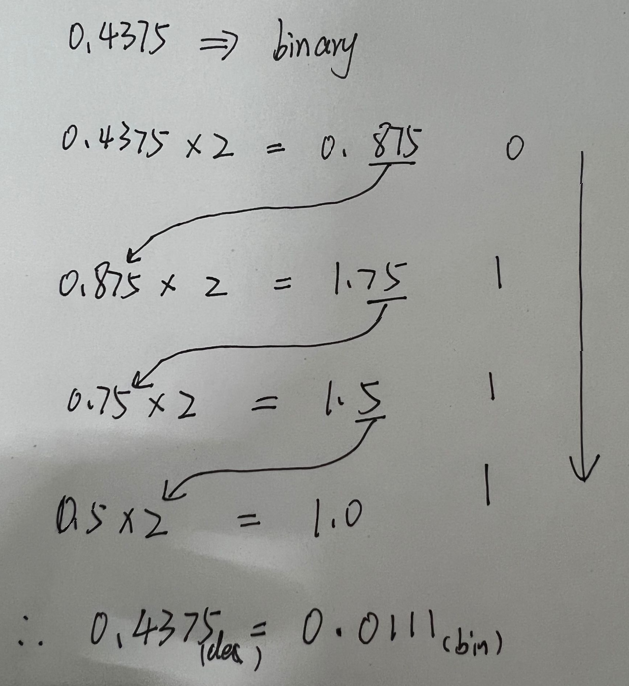 0.4375 ⇒ binary
0.4375 × 2 = 0.875 0
0.875 × 2 = 1.75 1
0.75 × 2 = 1.5 1
0.5 × 2 = 1.0 1
∴ 0.4375(dec) = 0.0111(bin)